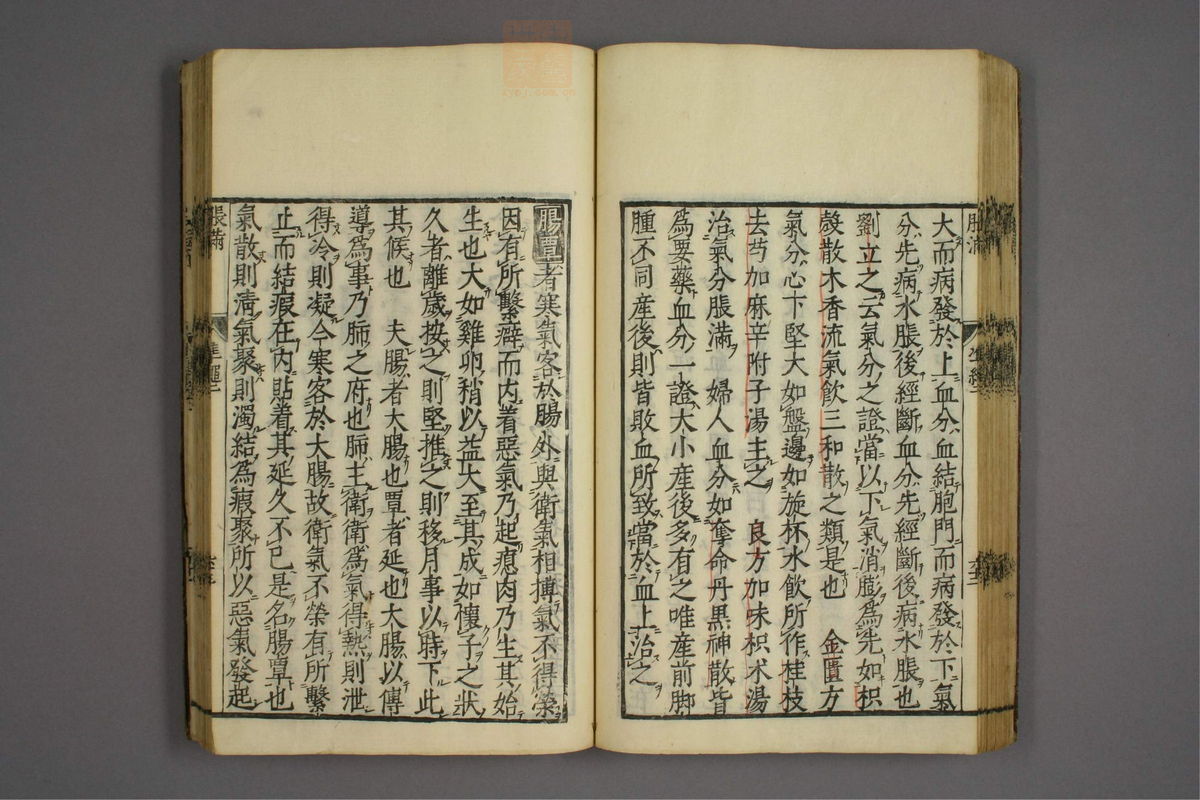 大而病發於上血分血結胞門而病發於下氣
分先病水脹後經斷血分先經斷後病水脹也
劉立之云氣分之證當以下氣消膨爲先如枳
殼散木香流氣飲三和散之類是也　金匱方
氣分心下堅大如盤邊如旋杯水飲所作桂枝
去芍加麻辛附子湯主之　良方加味枳朮湯
治氣分脹滿　婦人血分如奪命丹黒神散皆
爲要藥血分一證大小產後多有之唯產前脚
腫不同產後則皆敗血所致當於血上治之
腸覃者寒氣客於腸外與衛氣相搏氣不得榮
因有所繫癖而内着惡氣乃起瘜肉乃生其始
生也大如雞卵稍以益大至其成如懷子之狀
久者離歲按之則堅推之則移月事以時下此
其候也　夫腸者大腸也覃者延也大腸以傳
導爲事乃肺之府也肺主衛衛爲氣得熱則泄
得冷則凝今寒客於大腸故衛氣不榮有所繫
止而結瘕在内貼着其延久不已是名腸覃也
氣散則淸氣聚則濁結爲瘕聚所以惡氣發起
脹滿